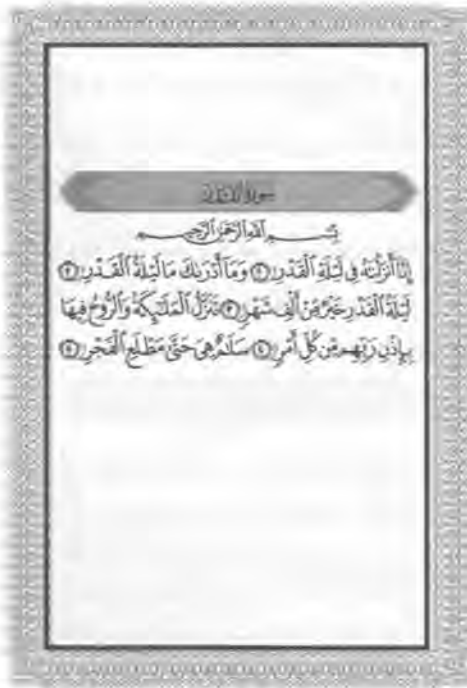 سورة القدر
بسم الله الرحمن الرحيم
إِنَّا أَنزَلْنَاهُ فِي لَيْلَةِ الْقَدْرِ ١ وَمَا أَدْرَاكَ مَا لَيْلَةُ الْقَدْرِ ٢
لَيْلَةُ الْقَدْرِ خَيْرٌ مِّنْ أَلْفِ شَهْرٍ ٣ تَنَزَّلُ الْمَلَائِكَةُ وَالرُّوحُ فِيهَا
بِإِذْنِ رَبِّهِم مِّن كُلِّ أَمْرٍ ٤ سَلَامٌ هِيَ حَتَّىٰ مَطْلَعِ الْفَجْرِ ٥